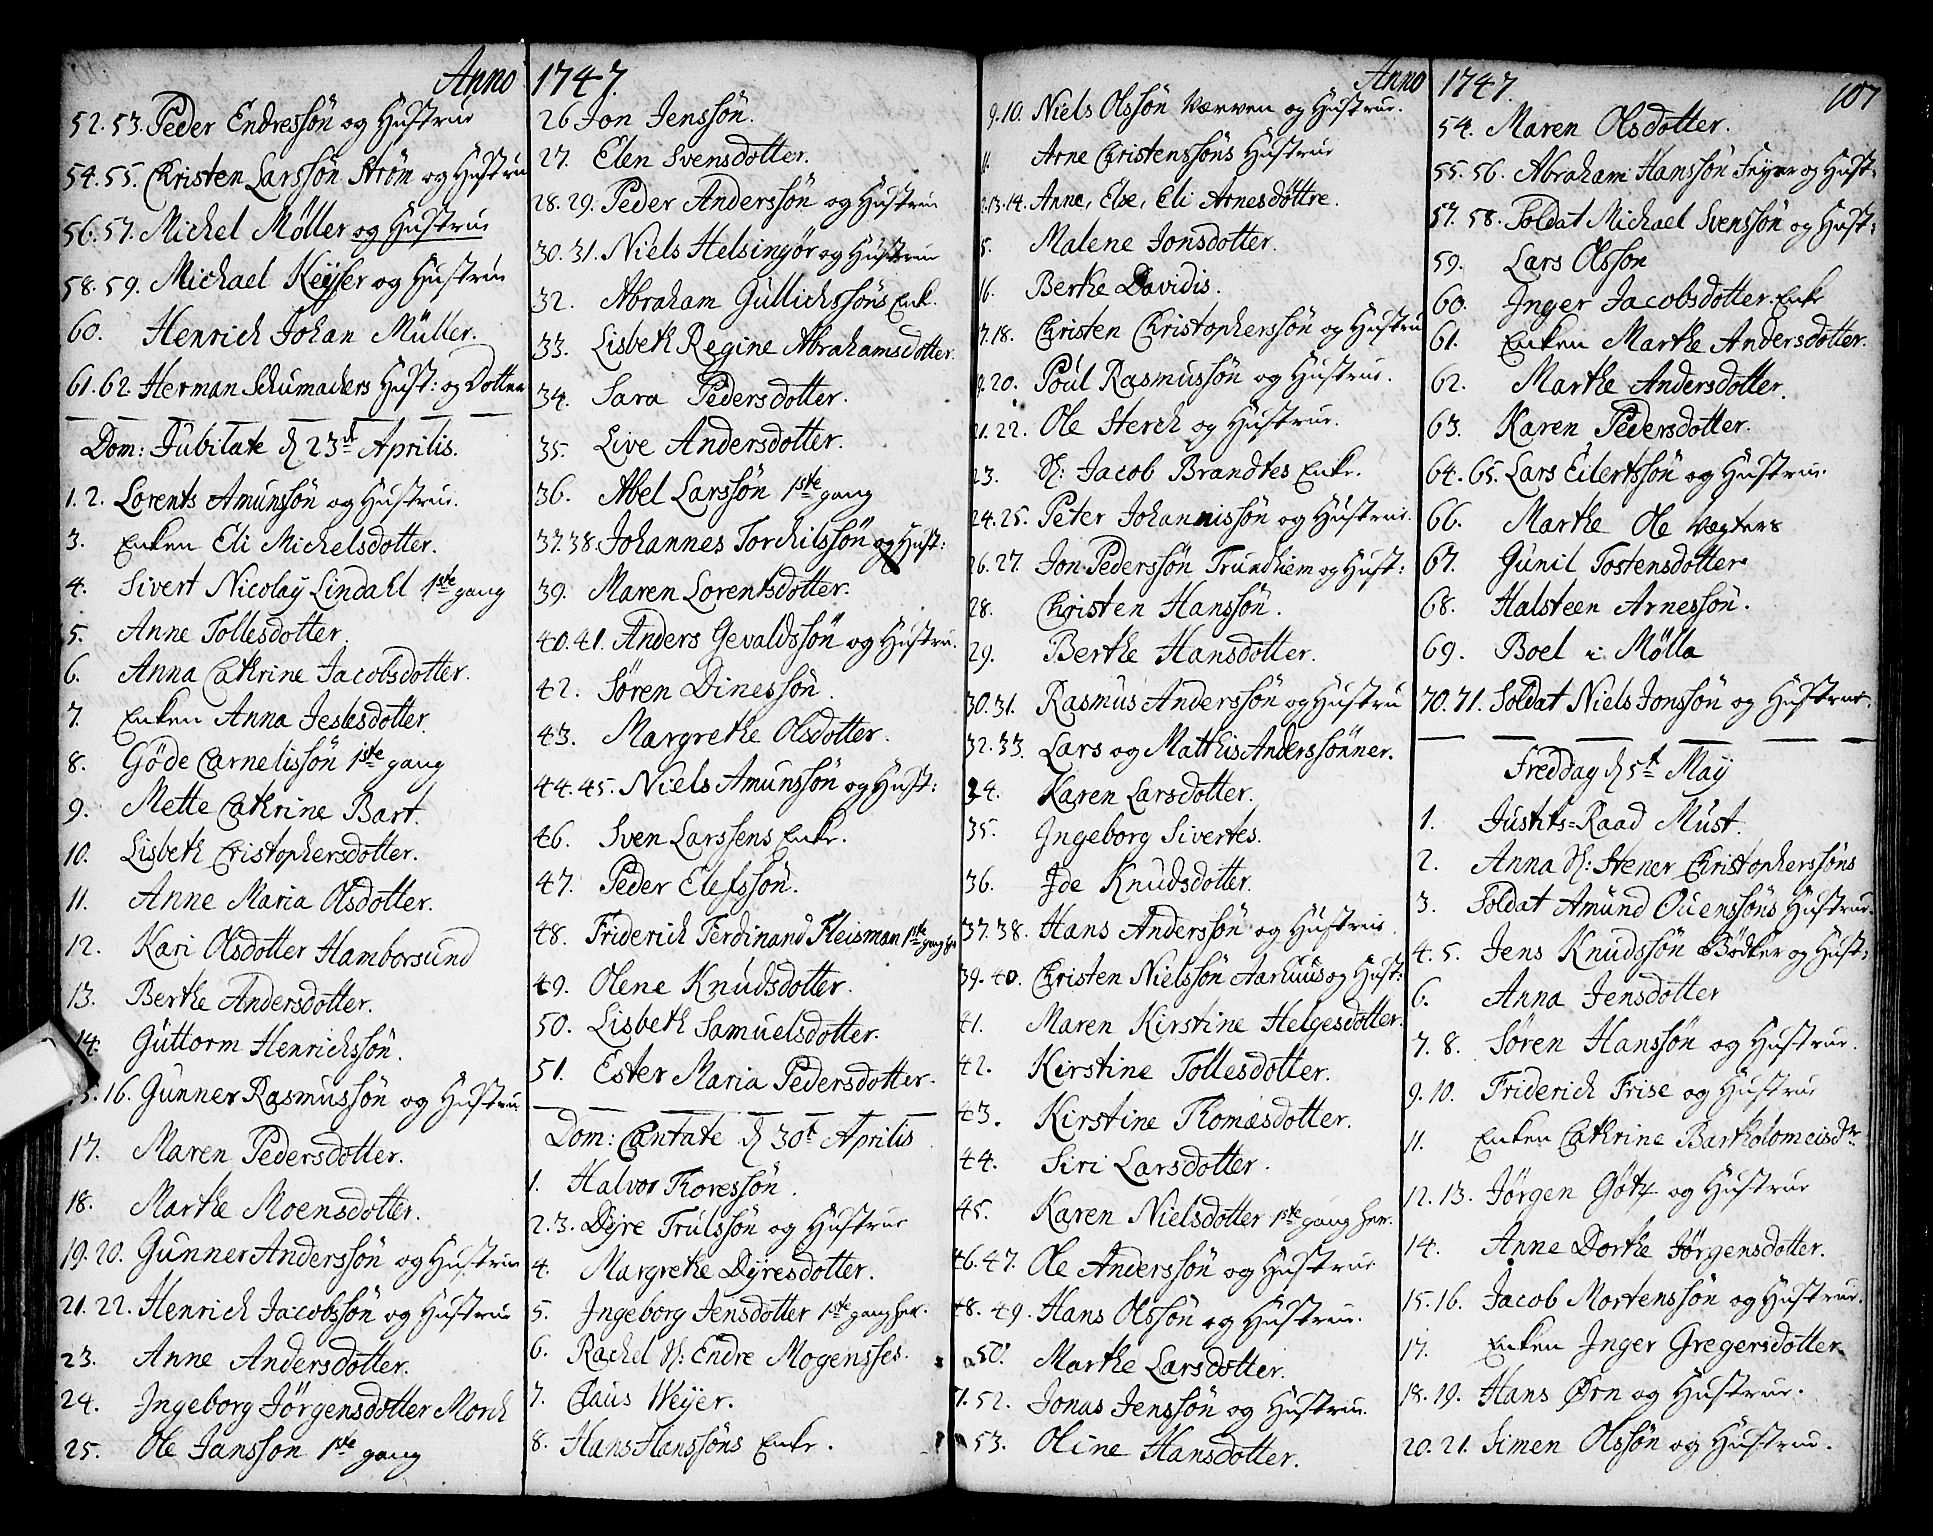 Anno 1747.
52. 53. Peder Endressön og Hustrue
54. 55. Christen Larssön Strøm og Hustru
56. 57. Michel Møller og Hustrue
58. 59. Michael Keyser og Hustrue
60. Henrich Johan Müller.
61. 62. Herman Schumachers Hust: og Dotter
Dom: Jubilate d 23d Aprilis.
1. 2. Lorents Amunssön og Hustrue.
3. Enken Eli Michelsdotter.
4. Sivert Nicolay Lindahl 1ste gang
5. Anne Tollesdotter.
6. Anna Cathrine Jacobsdotter.
7. Enken Anna Jeskesdotter.
8. Göde Carnelissön 1ste gang
9. Mette Cathrine Bart.
10. Lisbeth Cristophersdotter.
11. Anne Maria Olsdotter.
12. Kari Olsdotter Hamborsund
13. Berthe Andersdotter.
14. Guttorm Henrichssön.
5. 16. Gunner Rasmussön og Hustru
17. Maren Pedersdotter.
18. Marthe Moensdotter.
19. 20. Gunner Anderssön og Hustrue
21. 22. Henrich Jacobssön og Hustrue
23. Anne Andersdotter.
24. Ingeborg Jörgensdotter Morch
25. Ole Jansson 1ste gang
26 Jon Jenssön.
27. Elen Svensdotter.
28. 29. Peder Anderssön og Hustrue
30. 31. Niels Helsingör og Hustrue
32. Abraham Gullichssöns Enk.
33. Lisbeth Regine Abrahamsdotter.
34. Sara Pedersdotter.
35. Live Andersdotter.
36. Abel Larssön 1ste gang
37. 38. Johannes Torchilssön og Hust:
39. Maren Lorentsdotter.
40. 41. Anders Gevaldssön og Hustru.
42. Søren Dinessön.
43. Margrethe Olsdotter.
44. 45. Niels Amunssön og Hust:
46. Sven Larssens Enke.
47. Peder Elefssön.
48. Friderich Ferdinand Fleisman 1ste gang her
49. Olene Knudsdotter.
50. Lisbeth Samuelsdotter.
51. Ester Maria Pedersdotter.
Dom: Cantate d 30t Aprilis
1. Halvor Thoressön.
2. 3. Dyre Trulssön og Hustrue
4. Margrethe Dyresdotter.
5. Ingeborg Jensdotter 1ste gang her.
6. Rachel S: Endre Mogensses.
7. Claus Weyer.
8. Hans Hanssöns Enke.
Anno 1747. 107
9. 10. Niels Olssön Værven og Hustrue.
11. Arne Christenssöns Hustrue
2. 13. 14. Anne, Else, Eli Arnesdöttre.
5. Malene Jonsdotter.
16. Berthe Davidis.
17. 18. Christen Christopherssön og Hustru
9. 20. Poul Rasmussön og Hustrue.
21. 22. Ole Sterch og Hustrue.
23. S: Jacob Brandtes Enke.
24. 25. Peter Johannissön og Hustrue.
26. 27. Jon Pederssön Trundhiem og Hust:
28. Christen Hanssön.
29. Berthe Hansdotter.
30. 31. Rasmus Anderssön og Hustru
32. 33. Lars og Mathis Anderssönner.
34. Karen Larsdotter.
35. Ingeborg Sivertes.
36. Ide Knudsdotter.
37. 38. Hans Anderssön og Hustrue.
39. 40. Christen Nielssön Aarhuus og Hust:
41. Maren Kirstine Helgesdotter.
42. Kirstine Tollesdotter.
43. Kirstine Thomasdotter.
44. Siri Larsdotter.
45. Karen Nielsdotter 1ste gang her.
46. 47. Ole Anderssön og Hustrue
48. 49. Hans Olssön og Hustrue.
50. Marthe Larsdotter.
1. 52. Jonas Jenssön og Hustrue.
53. Oline Hansdotter.
54. Maren Olsdotter.
55. 56. Abraham Hanssön Feyer og Hust:
57. 58. Soldat Michael Svenssön og Hust:
59. Lars Olsson
60. Inger Jacobsdotter Enke
61. Enken Marthe Andersdotter.
62. Marthe Andersdotter.
63. Karen Pedersdotter.
64. 65. Lars Eilertssön og Hustrue.
66. Marthe Ole Vegters
67. Gunil Tostensdotter
68. Halsteen Arnessön.
69. Boel i Mölla
70. 71. Soldat Niels Jonssön og Hustrue.
Freddag d 5t May
1. Justits=Raad Must.
2. Anna S: Stener Christopherssöns
3. Soldat Amund Ouenssöns Hustrue.
4. 5. Jens Knudssön Bödker og Hust:
6. Anna Jensdotter
7. 8. Søren Hanssön og Hustrue.
9. 10. Friderich Frise og Hustrue
11. Enken Cathrine Bartholomeisdr.
12. 13. Jörgen Götz og Hustrue
14. Anne Dorthe Jörgensdotter.
15. 16. Jacob Mortenssön og Hustrue.
17. Enken Inger Gregersdotter
18. 19. Hans Ørn og Hustrue.
20. 21. Simen Olssön og Hustrue.